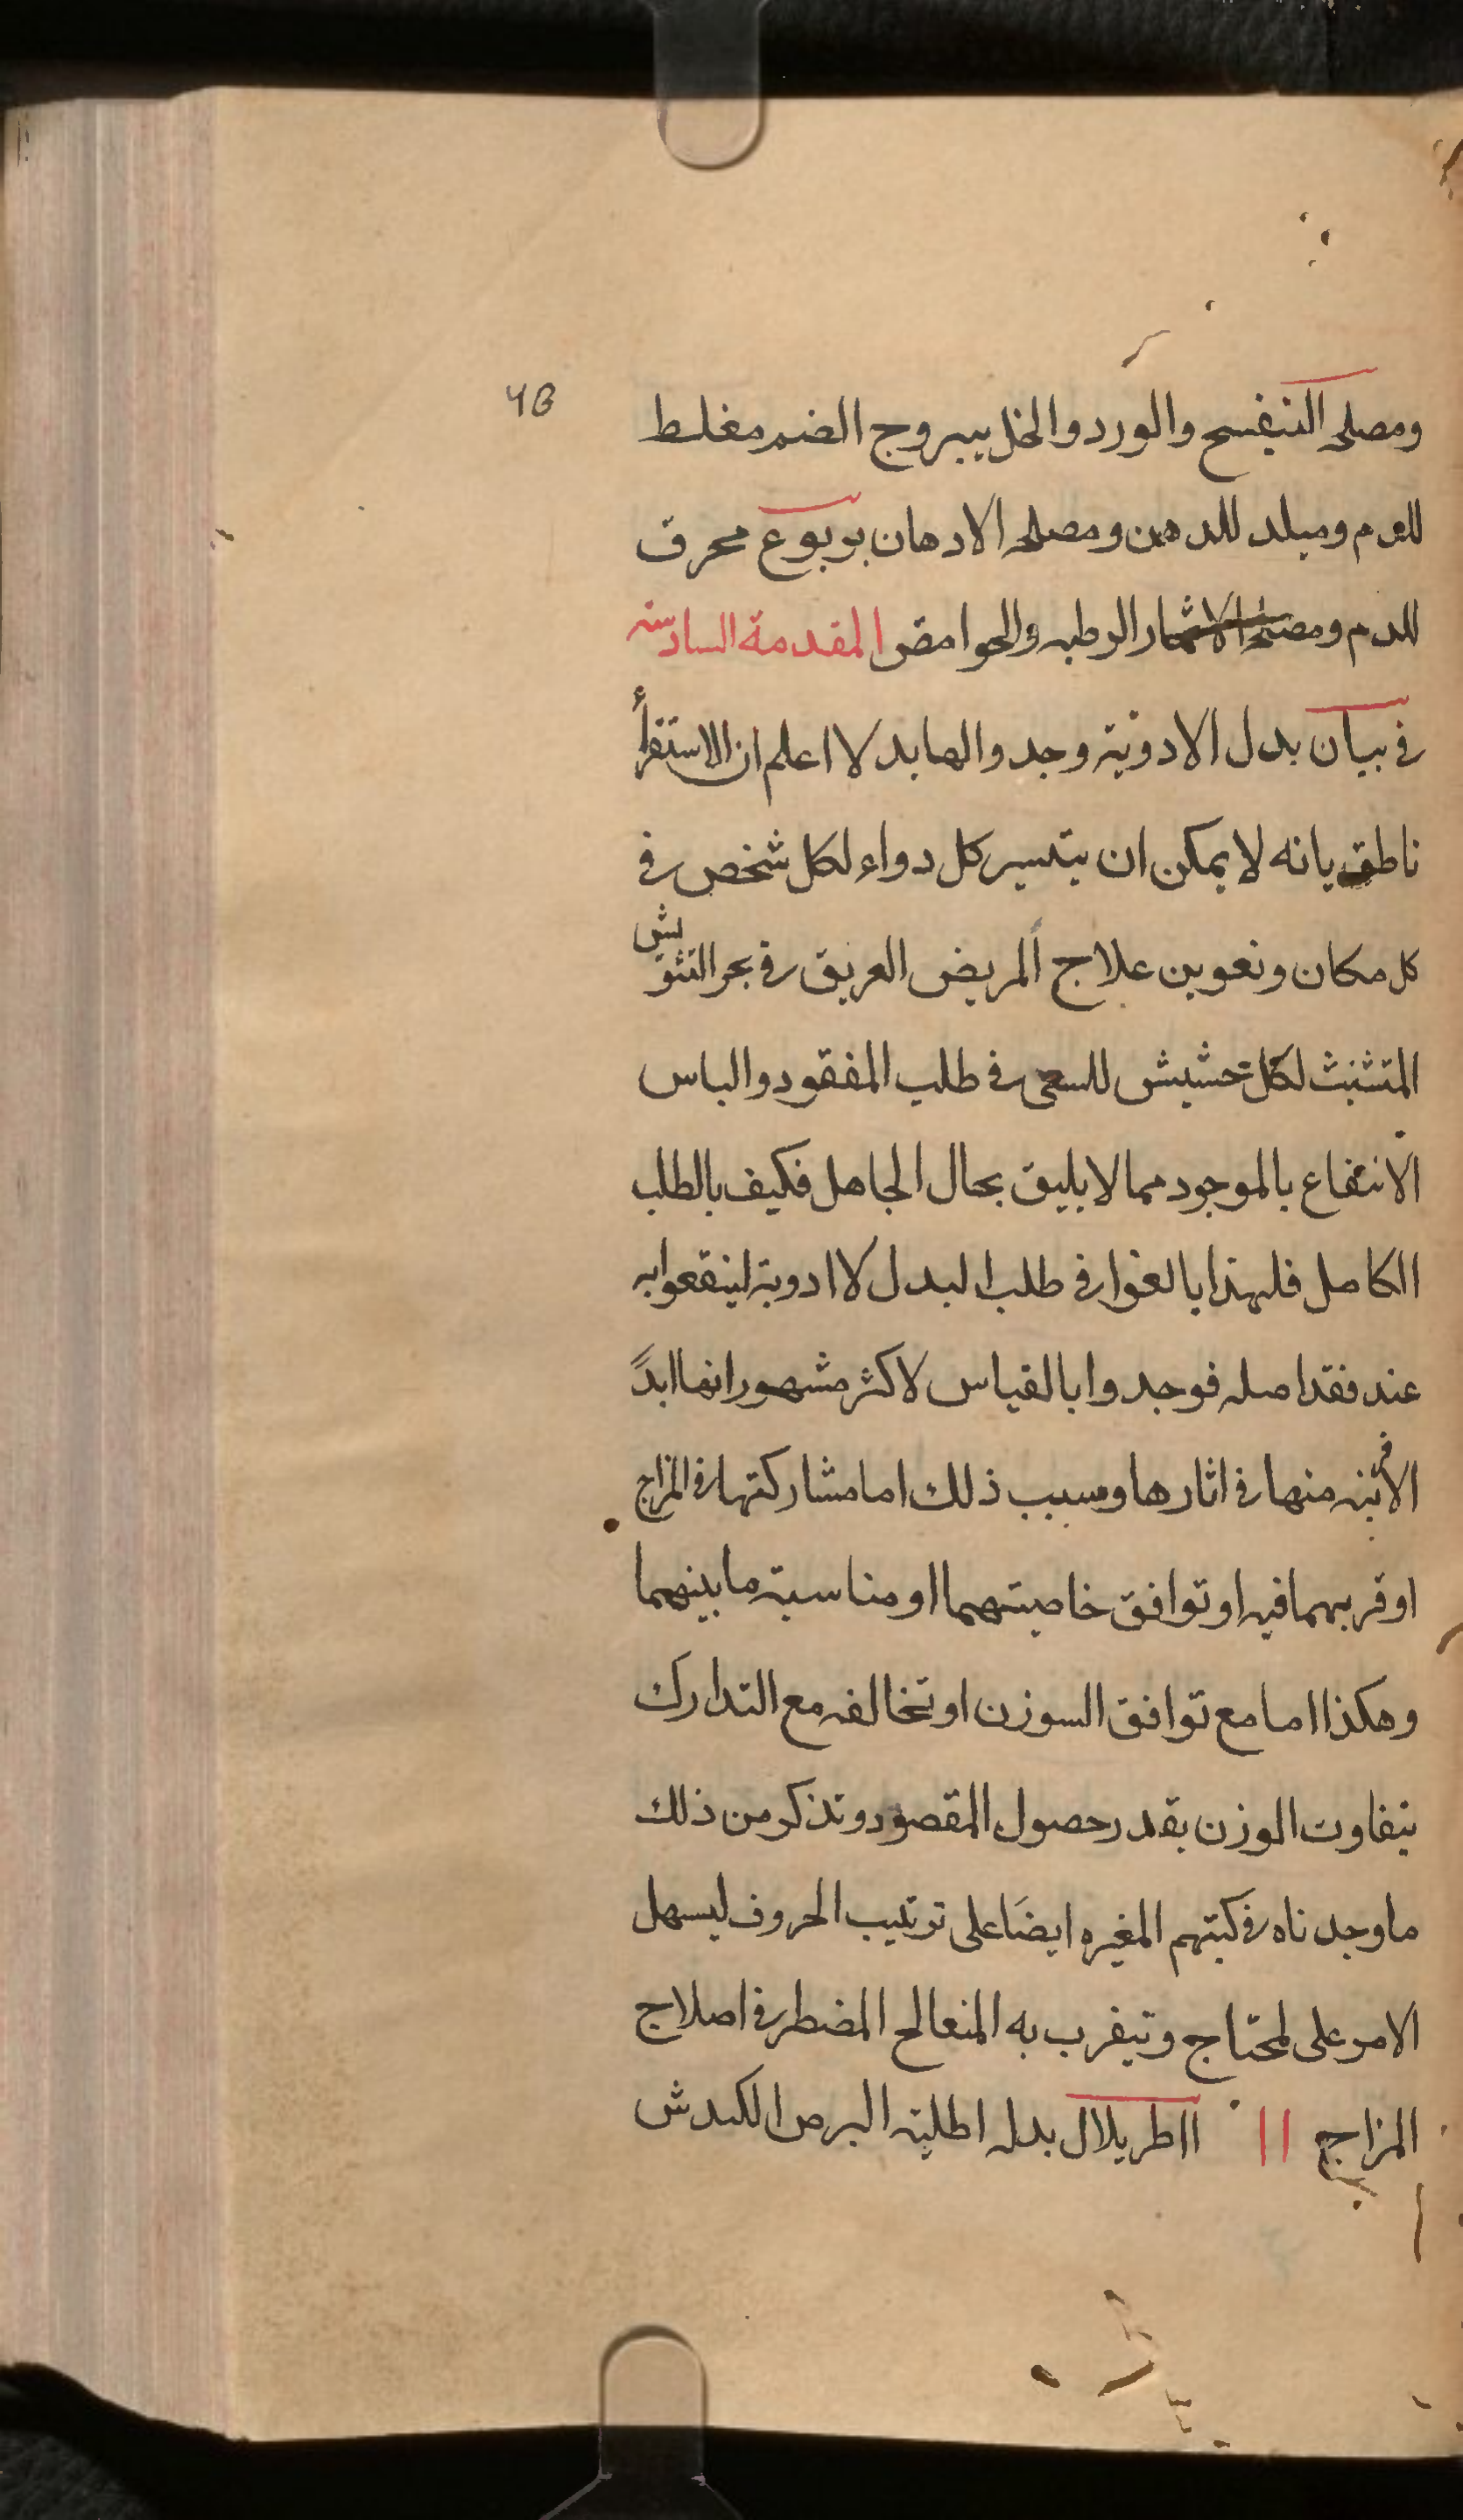 ومصلحه البنفسج والورد والخل يبروج الضم مغلط
للدم ومبلد للدهن ومصلحه الادهان يربوع محرق
للدم ومصلحه الاثمار الرطبه والحوامض المقدمة السادسه
في بيان بدل الادوية وجد والها بدلا اعلم ان الاستقرأ
ناطق بانه لا يمكن ان يتيسر كل دواء لكل شخص في
كل مكان وتعوين علاج المريض الغريق في بحر التشويش
المتشبث لكل حشيش للسعى في طلب المفقود والياس
الانتفاع بالموجود مما لا يليق بحال الجاهل فكيف بالطلب
الكامل فلهذا بالغوا في طلب البدل لاادوية لينتفعوا به
عند فقد اصله فوجدوا بالقياس لاكثر مشهوراتها ابدً
منها في اثارها وسبب ذلك اما مشاركتها في المزاج
او قربهما فيه او توافق خاصيتهما او مناسبة ما بينهما
وهكذا اما مع توافق السوزن او تخالفه مع التدارك
بتفاوت الوزن بقدر حصول المقصود وتذكر من ذلك
ما وجدناه في كتبهم المغيره ايضًا على ترتيب الحروف ليسهل
الامر على لمحتاج ويتيقرب به المنعالج المضطر في اصلاح
المزاج ااطريلال بدله اطلية البرص الكندش